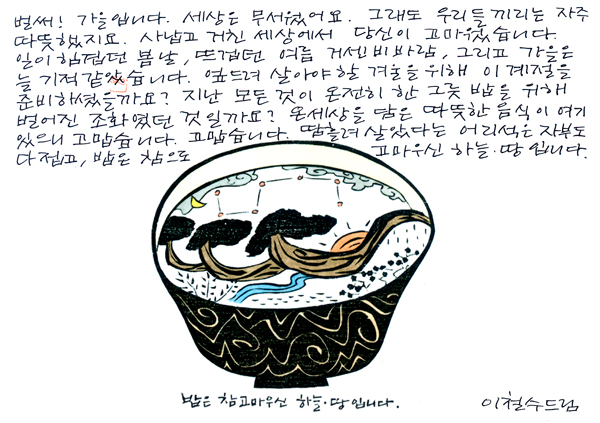 벌써! 가을입니다. 세상은 무서웠어요. 그래도 우리들끼리는 자주
따뜻했지요. 사납고 거친 세상에서 당신이 고마웠습니다.
일이 힘겹던 봄날, 뜨겁던 여름 거센 비바람, 그리고 가을은
늘 기적 같았습니다. 엎드려 살아야 할 겨울을 위해 이 계절을
준비하셨을까요? 지난 모든 것이 온전히 한 그릇 밥을 위해
벌어진 조화였던 것일까요? 온세상을 담은 따뜻한 음식이 여기
있으니 고맙습니다. 고맙습니다. 땀흘려 살았다는 어리석은 자부도
다 접고, 밥은 참으로 고마우신 하늘·땅입니다.
밥은 참 고마우신 하늘·땅입니다.
이철수드림